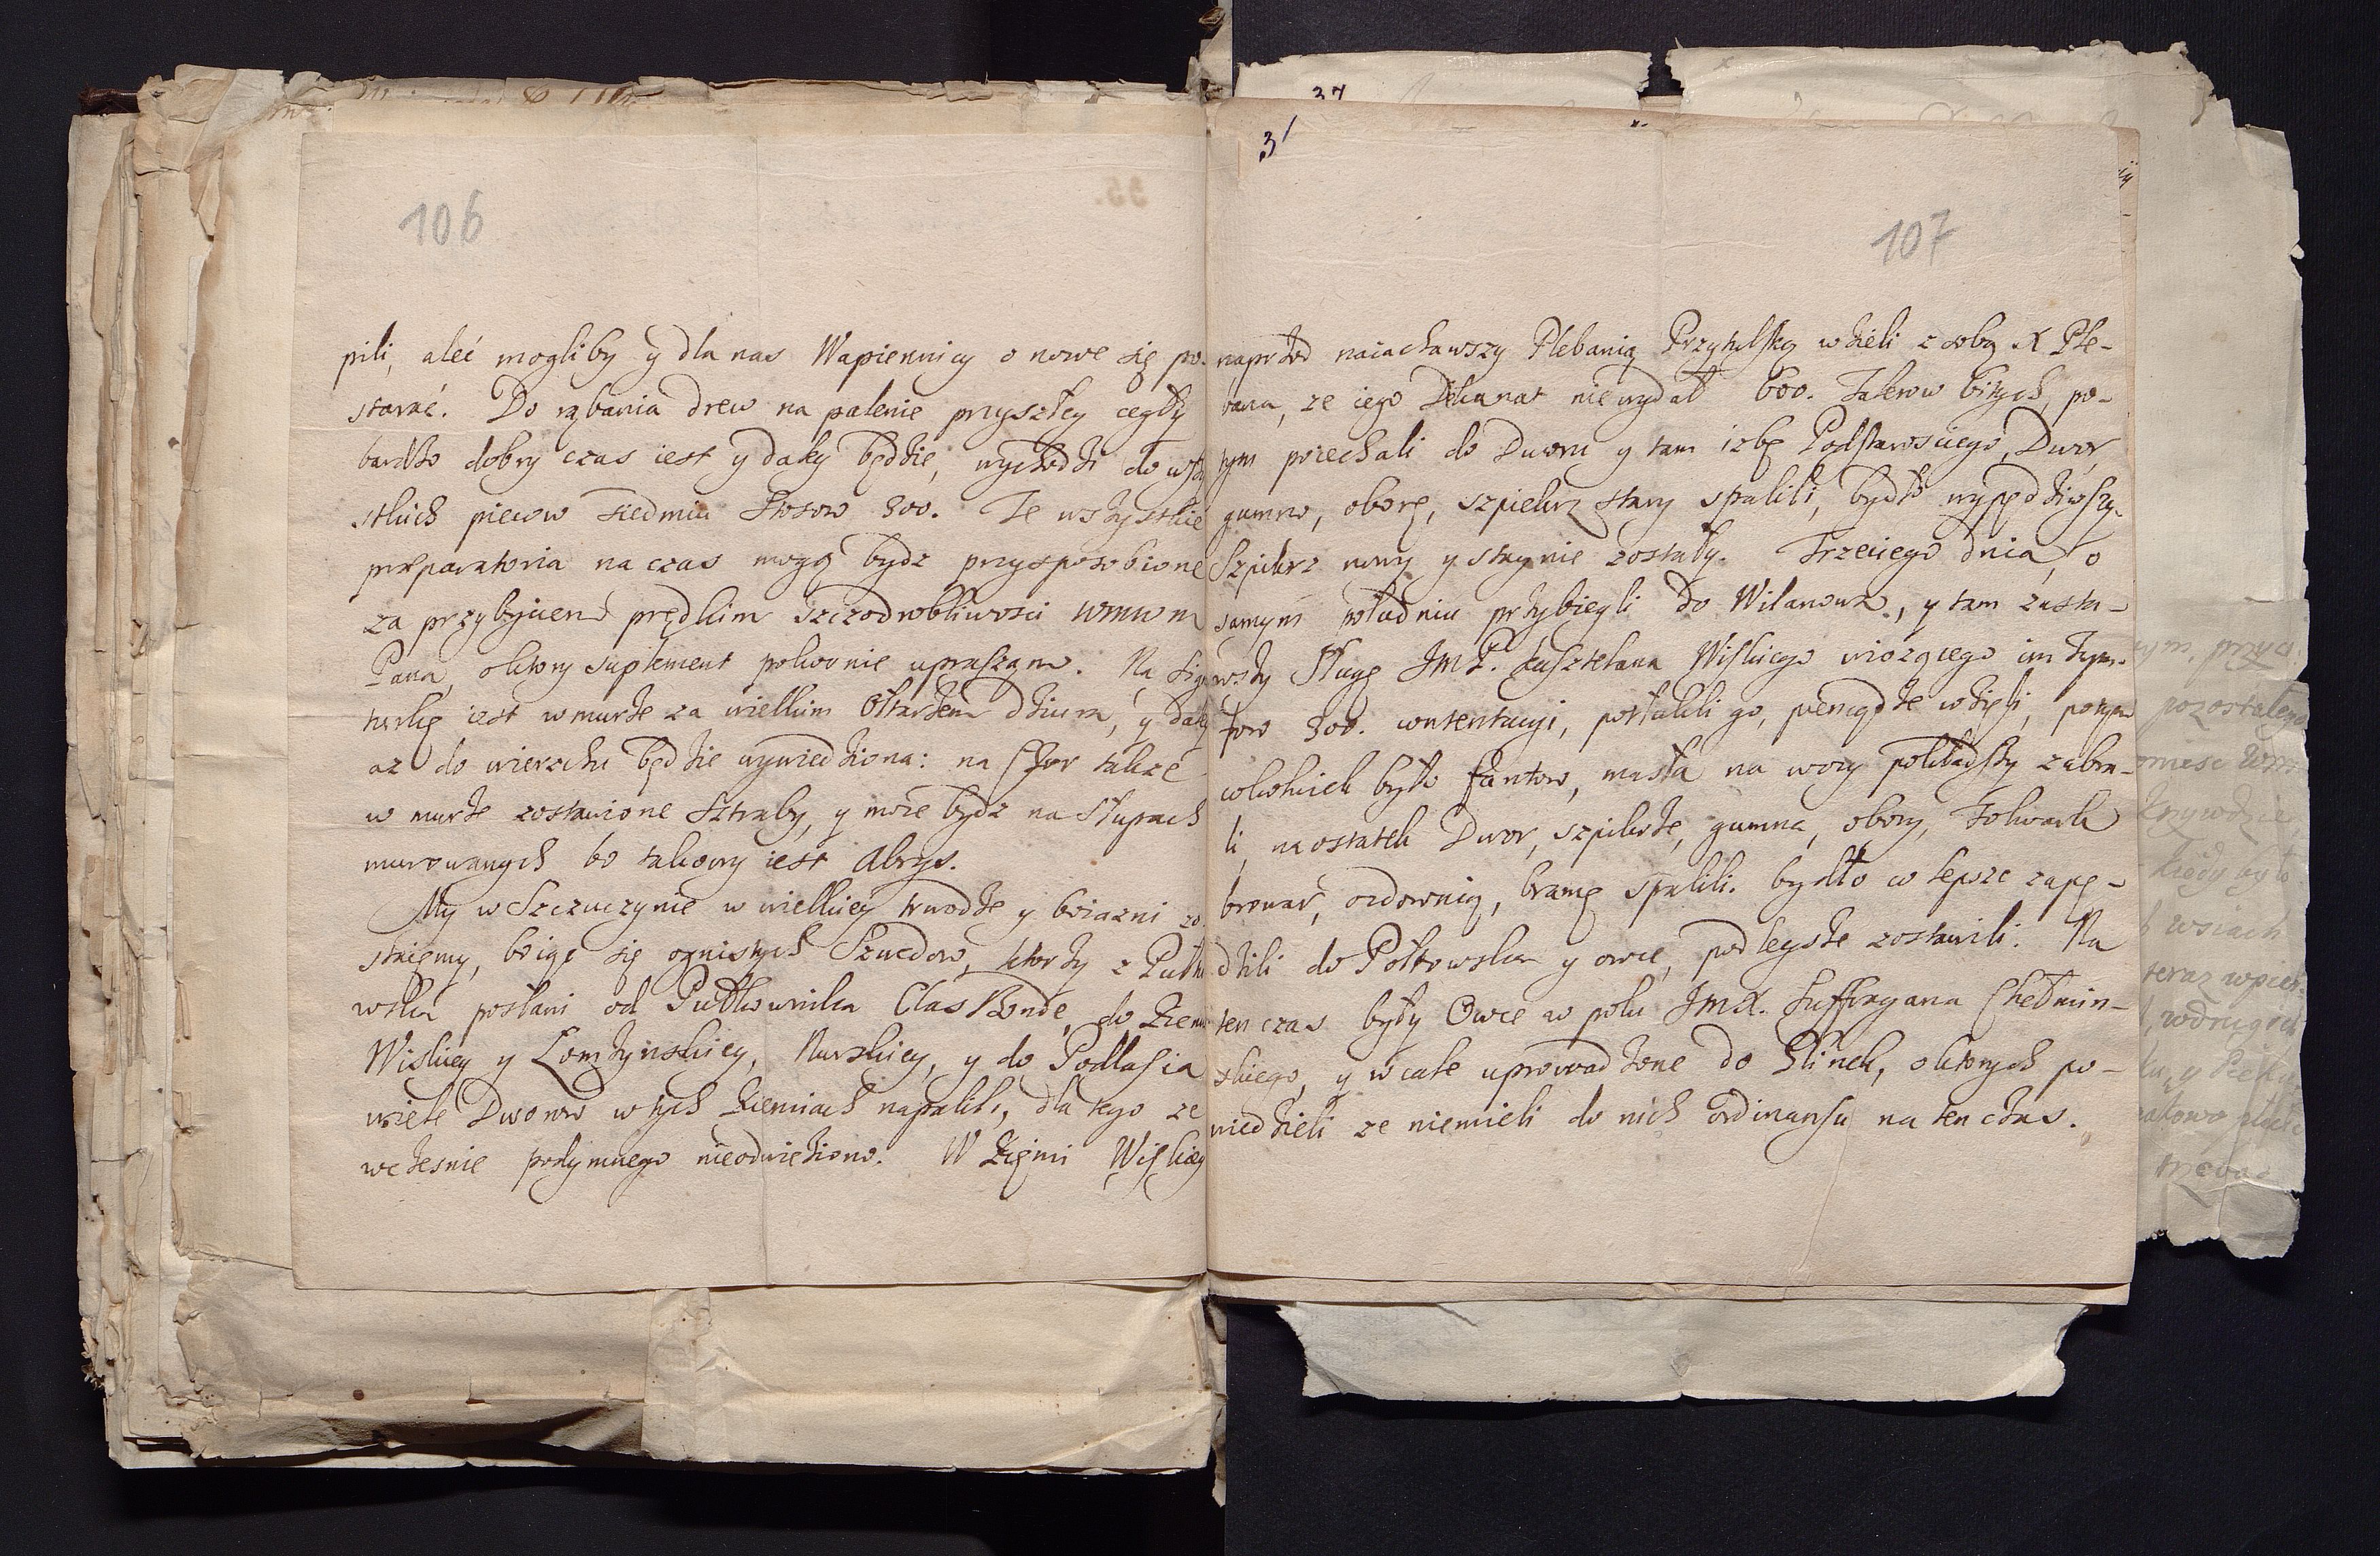 106
pili, aleć mogliby y dla nas Wapiennicy o nowe się po-
starać. Do rąbania drew na palenie przyszłey cegły
bardzo dobry czas iest y daley będzie, wychodzi do wszy
stkich piecow siedmiu stosow 300. Te wszystkie
præparatoria na czas mogą bydz przysposobione
za przybyciem prędkim szczodrobliwosci WMWM
Pana, o ktory suplement pokornie upraszam. Na
iest w murze za wielkim Ołtarzem dziura, y daley
az do wierzchu będzie wywiedziona: na Chor takze
w murze zostawione Sztraby, y moze bydz na Słupach
murowanych bo takowy iest Abrys.
My w Szczuczynie w wielkiey trwodze y boiazni zo-
staiemy, boiąc się ognistych Szwedow, ktorzy z Pułtu
wska posłani od Pułkownika Clas Bonde, do Ziemi
Wiskiey y Łomzynskiey, Nurskiey, y do Podlasia
wiele Dworow w tych Ziemiach napalili, dla tego ze
wczesnie podymnego nieodwieziono. W Ziemi Wiskiey
37
31
107
naprzod naiachawszy Plebanią Przytulską wzieli z sobą X Ple-
bana, ze iego Dekanat nie wydał 600. Talerow bitych, po-
tym poiechali do Dworu y tam izbę Podstarosciego, Dwor,
gumno, oborę, szpiklerz stary spalili, bydło wypędziwszy.
Szpiklerz nowy y staynie zostały. Trzeciego dnia, o
samym południu przybiegli do Wilanowa, y tam zasta-
wszy Sługę JMP. Kasztelana Wiskiego wiozącego im Tym-
fow 300. contentacyi, potłukli go, pieniądze wzieli, potym
cokolwiek było fantow, masła na wozy pokładszy zabra-
li, na ostatek Dwor, szpiklerze, gumna, obory, Folwark
browar, ozdownią, bramę spalili. bydło co lepsze zapę-
dzili do Połtowska y owce, podleysze zostawili. Na
ten czas były Owce w polu JMX. Suffragana Chełmin-
skiego, y wcale uprowadzone do Glinek, o ktorych po-
wiedzieli ze niemieli do nich ordinansu na ten czas.